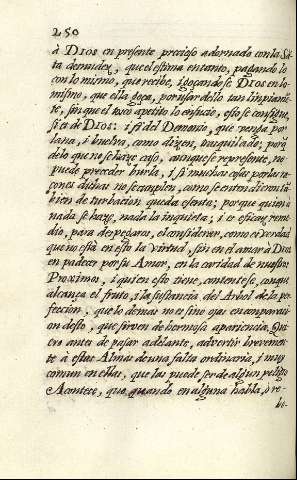 250
à Dios en presente precioso adornado con la Sã-
ta desnudez, que el estima en tanto, pagando lo
con lo mismo, que recibe, i goçandose Dios en lo
mismo, que ella goça, por usar dello tan limpiamẽ-
te, sin que el tosco apetito lo ensucie, esto se consigue,
si es de Dios: i si del Demonio, que venga por
lana, i buelva, como dizen, trasquilado; porq̃
delo que no se haze caso, aunque se represente, no
puede proceder burla, i si muchas cosas por las ra-
çones dichas no se cumplen, como se entendieron tã-
bien de turbacion queda esenta; porque quien
nada se haze, nada la inquieta; i es eficaz reme-
dio, para despegarse, el considerar, como es verdad
que no està en esto la virtud, sin en el amor à Dios
en padecer por su Amor, en la caridad de nuestros
Proximos, i quien esto tiene, contentese, conque
alcança el fruto, i la sustancia del Arbol de la per-
feccion, que lo demas no es sino ojas en comparaci-
on desto, que sirven de hermosa apariencia. Qui-
ero antes de pasar adelante, advertir brevemen-
te à estas Almas de una falta ordinaria, i muy
comun en ellas, que las puede ser de algun peligro
Acontece, que quando en alguna habla, o re-
be-